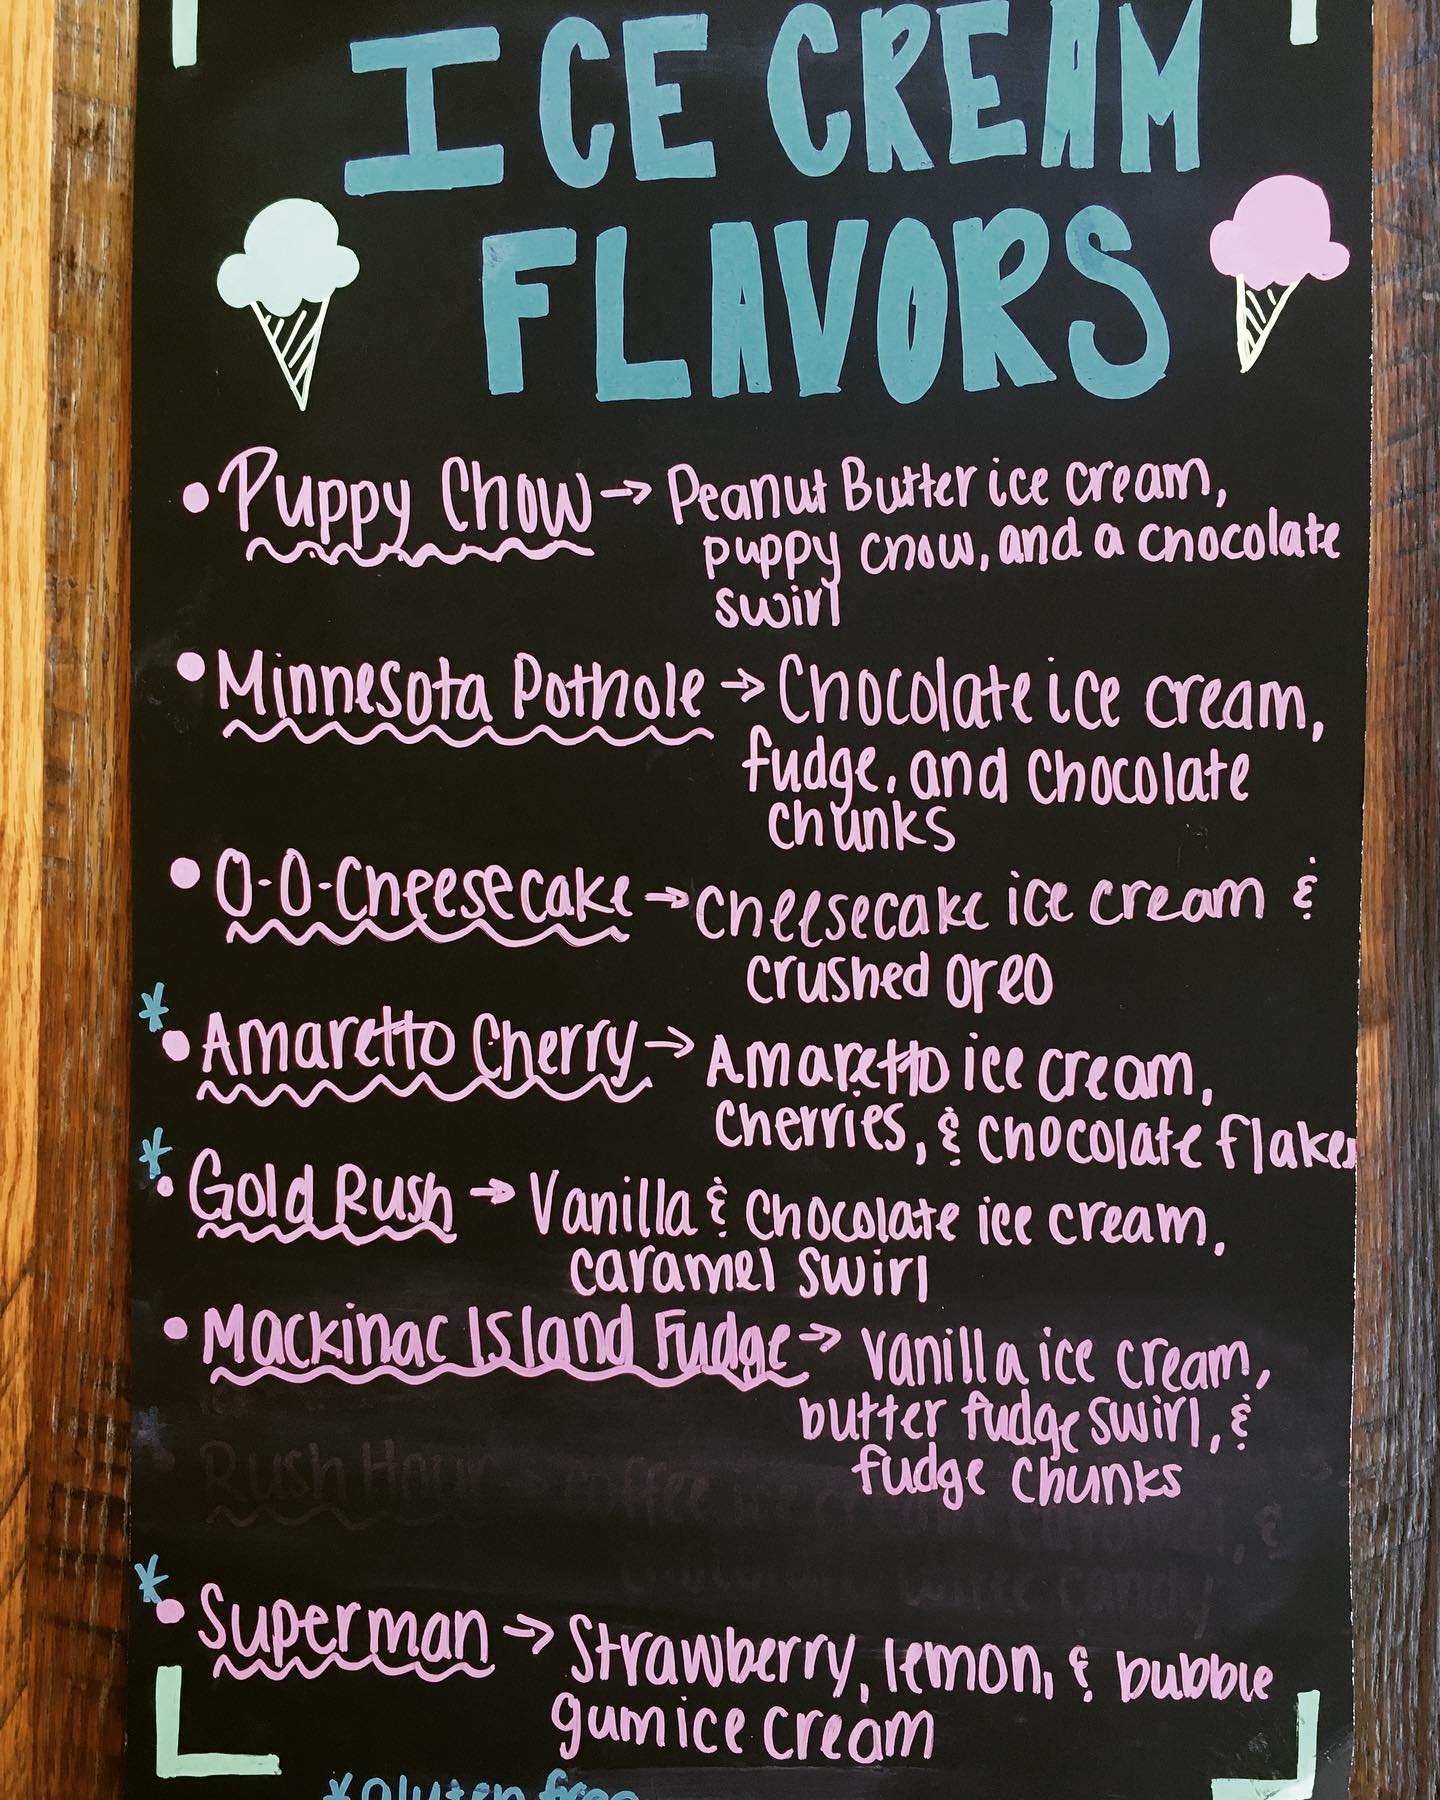 ICE CREAM
FLAVORS
• Puppy Chow → Peanut Butter ice cream,
puppy chow, and a chocolate
swirl
• Minnesota Pothole → Chocolate ice cream,
fudge, and chocolate
chunks
• O-O-Cheesecake → cheesecake ice cream &
crushed oreo
* • Amaretto Cherry → Amaretto ice cream,
cherries, & chocolate flakes
* • Gold Rush → Vanilla & chocolate ice cream,
caramel swirl
• Mackinac Island Fudge → vanilla ice cream,
butter fudge swirl, &
fudge chunks
Rush Hour → coffee ice cream, caramel, &
candy
* • Superman → Strawberry, lemon, & bubble
gum ice cream
* gluten free